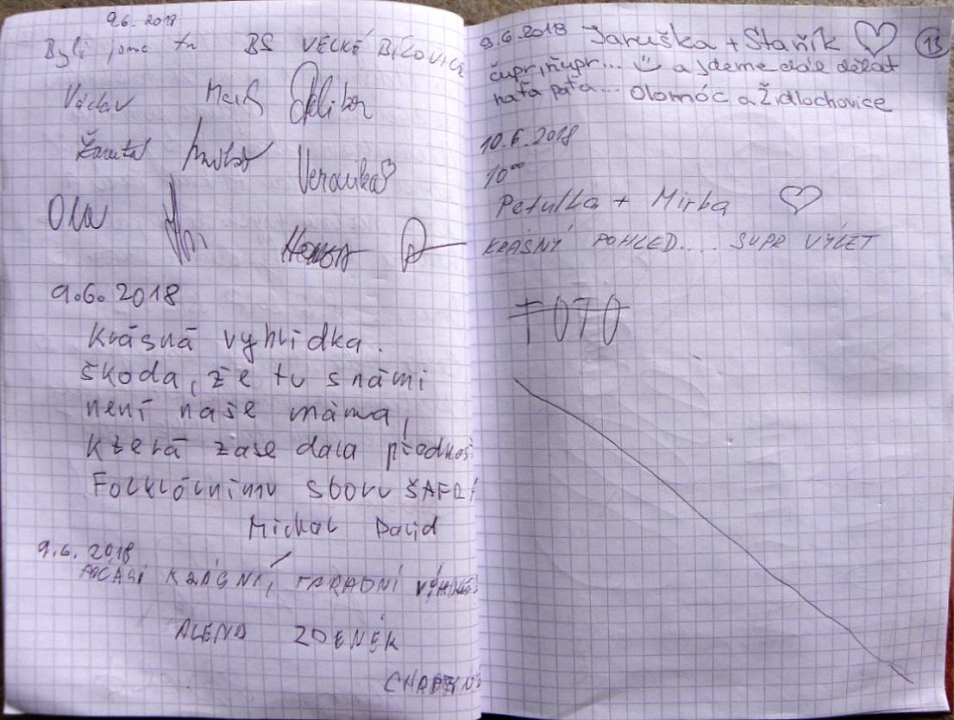 9.6. 2018
Byli jsme tu BS VELKÉ BÍLOVICE
Václav Dalibor
Veronika
Ola
Honza
9.6. 2018
Krásná vyhlídka.
Škoda, že tu s námi
není naše máma,
která zase dala přednos
Folklórnímu sboru ŠAFR
Michal David
9.6. 2018
POČASÍ KRÁSNÍ, PARADNÍ
ALENA ZDENĚK
9.6.2018 Jaruška + Staňík 13
čupr, ňupr... a jdeme dále dělat
naťa paťa... Olomóc a Židlochovice
10.6.2018
10⁰⁰
Petulka + Mirka
KRÁSNÝ POHLED.... SUPR VÝLET
FOTO